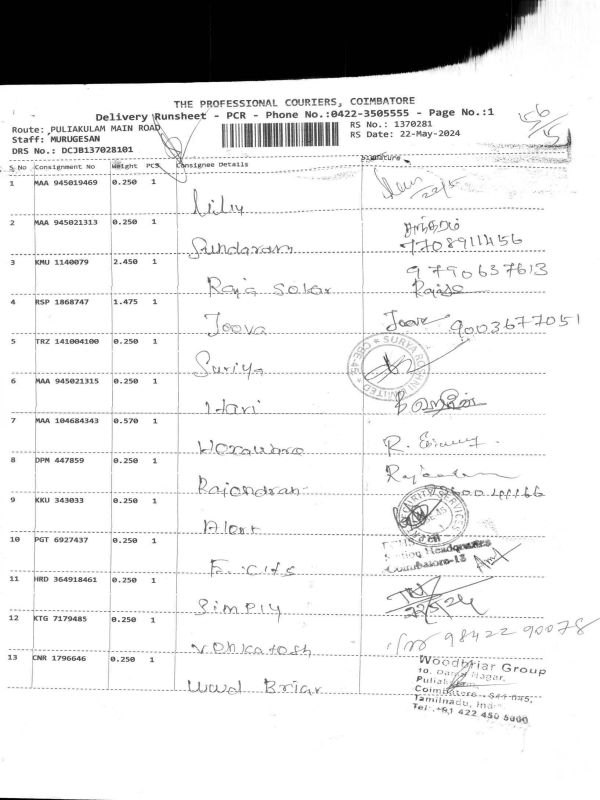 THE PROFESSIONAL COURIERS, COIMBATORE
Delivery Runsheet - PCR - Phone No.:0422-3505555 - Page No.:1
Route: PULIAKULAM MAIN ROAD RS No.: 1370281
Staff: MURUGESAN RS Date: 22-May-2024
DRS No.: DCJB137028101
S No Consignment No Weight PCS Consignee Details Signature
1 MAA 945019469 0.250 1 22/5
2 MAA 945021313 0.250 1 Sundaram சுந்தரம்
7708911456
3 KMU 1140079 2.450 1 9790637613
Raja Sekar
4 RSP 1868747 1.475 1 Joova 9003677051
5 TRZ 141004100 0.250 1 Suriya
6 MAA 945021315 0.250 1 Hari
7 MAA 104684343 0.570 1
8 DPM 447859 0.250 1 Rajendran
9 KKU 343033 0.250 1 Alert
10 PGT 6927437 0.250 1
Coimbatore-18
11 HRD 364918461 0.250 1 Simply
12 KTG 7179485 0.250 1 Venkatesh 98422 90078
13 CNR 1796646 0.250 1 Wood Briar
Woodbriar Group
Coimbatore - 641 045,
Tamilnadu, India
Tel: +91 422 450 5000